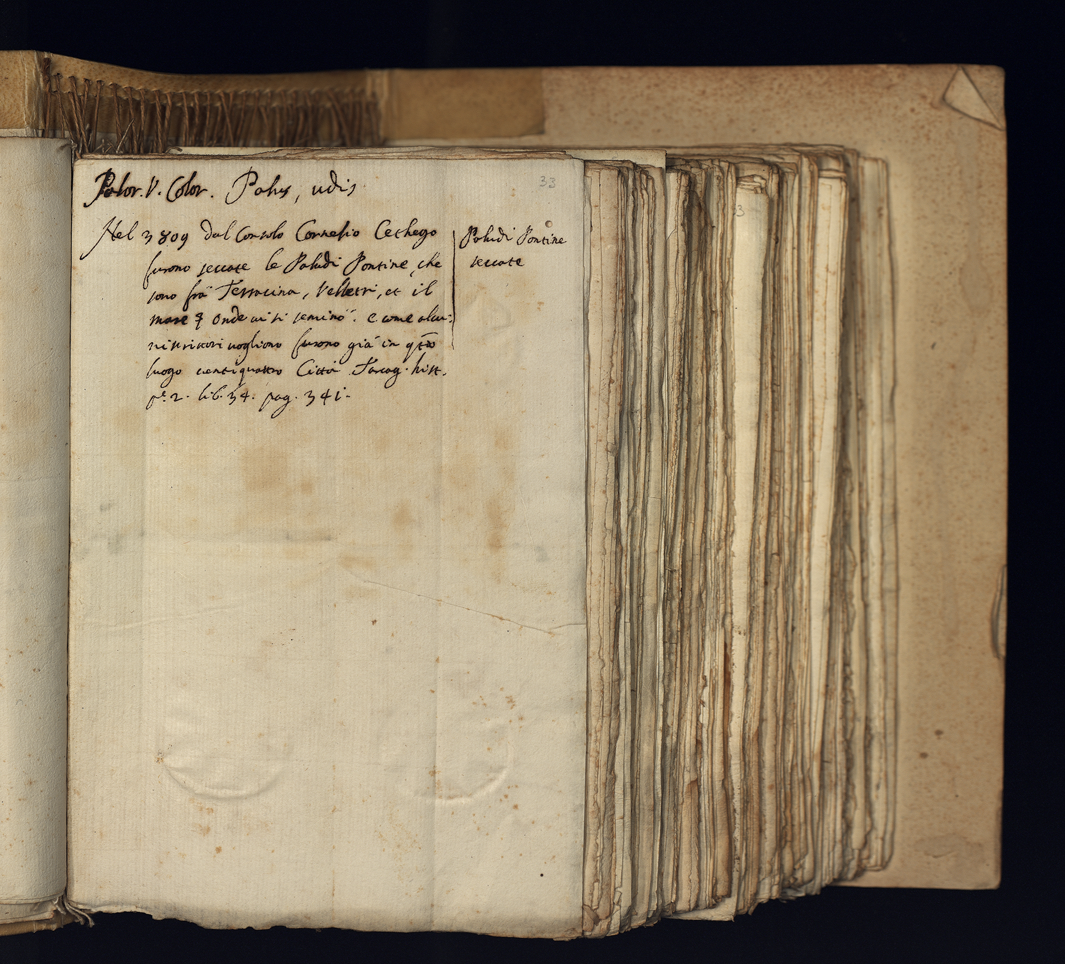 Palor. V. Color. Palus, udis
33
Nel 3809 dal Consolo Cornelio Cethego
furono seccate le Paludi Pontine, che
sono frà Terracina, Velletri, et il
mare
onde ui si seminò. e come alcu:
ni scrittori uogliono furono già in qsto
luogo uentiquattro Città Tarcag. hist.
pe. 2. lib. 34. pag. 341.
Paludi Pontine
seccate